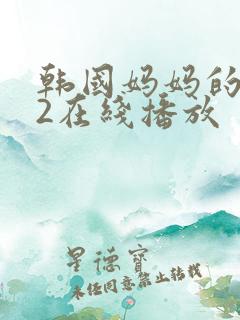 韩國妈妈的
2在綫播放
星德寶
未经同意禁止转载